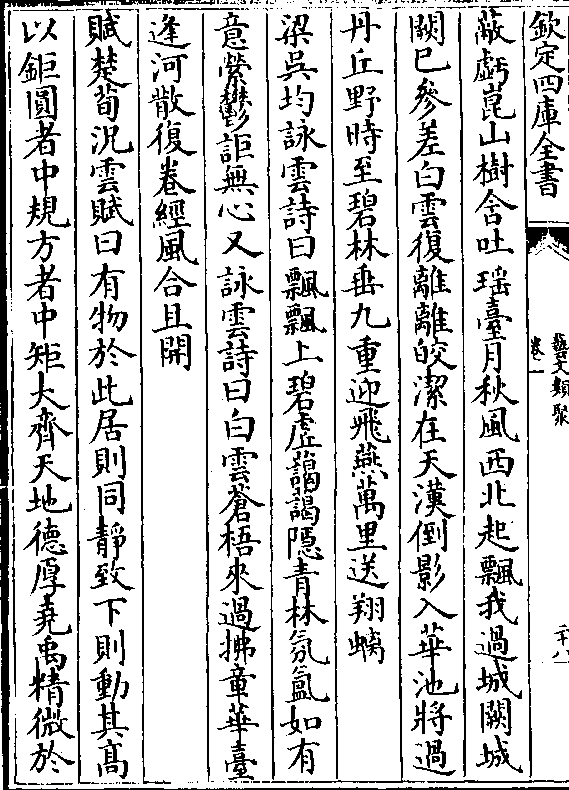 欽定四庫全書
藝文類聚
卷一
二十八
蔽虧崑山樹含吐瑶臺月秋風西北起飄我過城闕城
闕已參差白雲復離離皎潔在天漢倒影入華池將過
丹丘野時至碧林垂九重迎飛燕萬里送翔螭
梁吳均詠雲詩曰飄飄上碧虛藹藹隱青林氛氳如有
意縈鬱詎無心又詠雲詩曰白雲蒼梧來過拂章華臺
逢河散復卷經風合且開
賦楚荀況雲賦曰有物於此居則同靜致下則動其髙
以鉅圓者中規方者中矩大齊天地德厚堯禹精微於